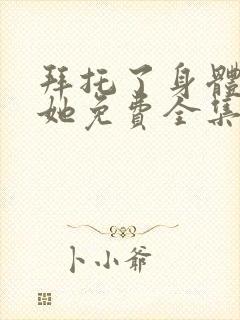 拜托了身體
她免費全集
卜小爺